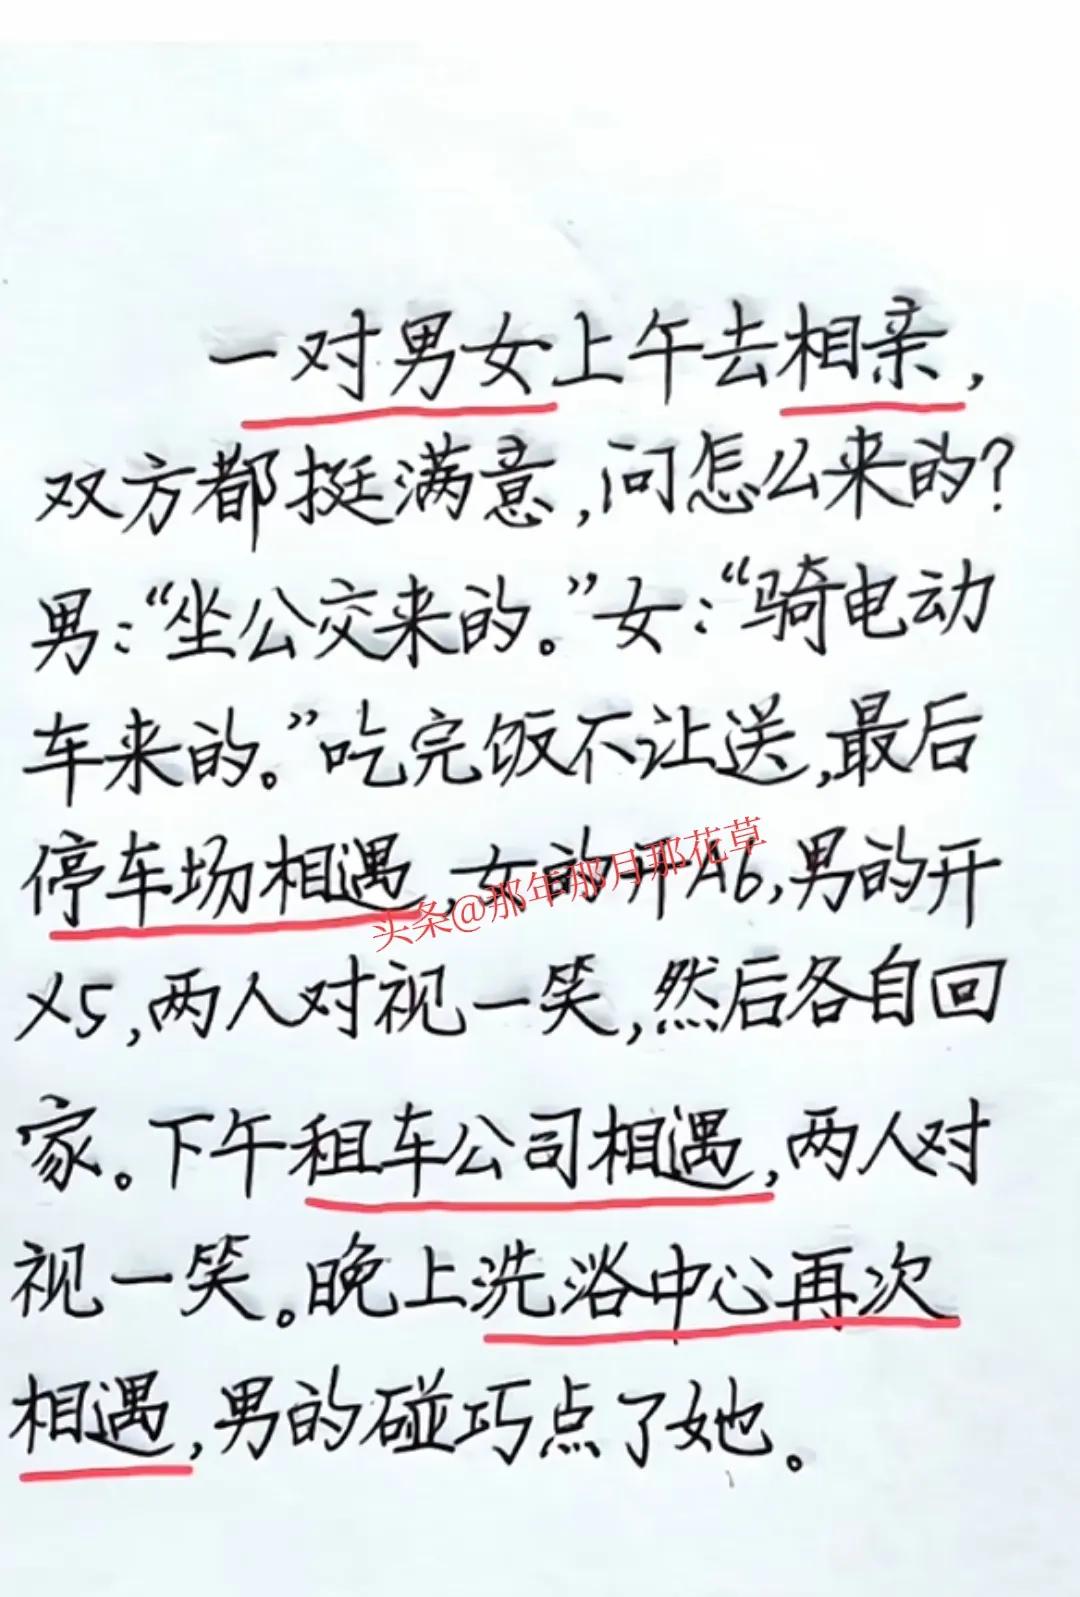 一对男女上午去相亲，
双方都挺满意，问怎么来的？
男：“坐公交来的。”女：“骑电动
车来的。”吃完饭不让送，最后
停车场相遇，女的开A6，男的开
X5，两人对视一笑，然后各自回
家。下午租车公司相遇，两人对
视一笑。晚上洗浴中心再次
相遇，男的碰巧点了她。
头条@那年那月那花草